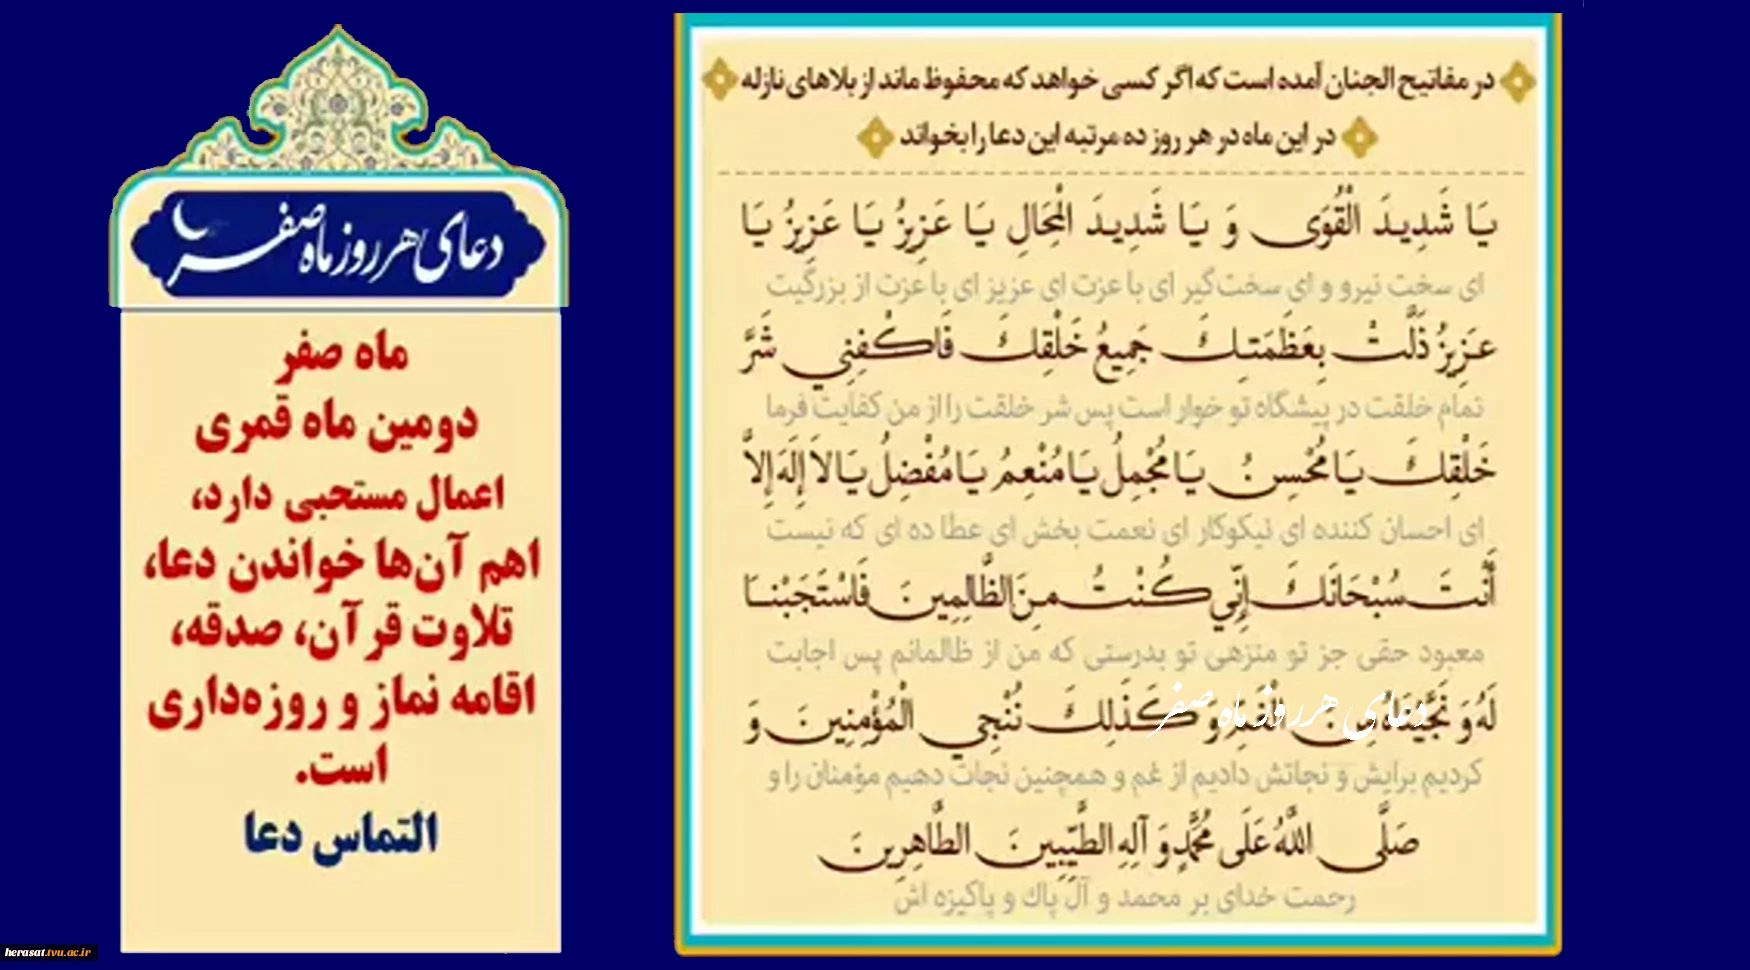 در مفاتیح الجنان آمده است که اگر کسی خواهد که محفوظ ماند از بلاهای نازله
در این ماه در هر روز ده مرتبه این دعا را بخواند
یَا شَدِیدَ الْقُوَى وَ یَا شَدِیدَ الْمِحَالِ یَا عَزِیزُ یَا عَزِیزُ یَا
ای سخت نیرو و ای سخت‌گیر ای با عزت ای عزیز ای با عزت از بزرگیت
عَزِیزُ ذَلَّتْ بِعَظَمَتِكَ جَمِیعُ خَلْقِكَ فَاكْفِنِي شَرَّ
تمام خلقت در پیشگاه تو خوار است پس شر خلقت را از من کفایت فرما
خَلْقِكَ یَا مُحْسِنُ یَا مُجْمِلُ یَا مُنْعِمُ یَا مُفْضِلُ یَا لاَ إِلَهَ إِلاَّ
ای احسان کننده ای نیکوکار ای نعمت بخش ای عطا ده ای که نیست
أَنْتَ سُبْحَانَكَ إِنِّي كُنْتُ مِنَ الظَّالِمِینَ فَاسْتَجَبْنَا
معبود حقی جز تو منزهی تو بدرستی که من از ظالمانم پس اجابت
لَهُ وَ نَجَّیْنَاهُ مِنَ الْغَمِّ وَ كَذَلِكَ نُنْجِي الْمُؤْمِنِینَ وَ
دعای هر روز ماه صفر
کردیم برایش و نجاتش دادیم از غم و همچنین نجات دهیم مؤمنان را و
صَلَّى اللَّهُ عَلَى مُحَمَّدٍ وَ آلِهِ الطَّیِّبِینَ الطَّاهِرِینَ
رحمت خدای بر محمد و آل پاك و پاکیزه اش
دعای هر روز ماه صفر
ماه صفر
دومین ماه قمری
اعمال مستحبی دارد،
اهم آن‌ها خواندن دعا،
تلاوت قرآن، صدقه،
اقامه نماز و روزه‌داری
است.
التماس دعا
herasat.tvu.ac.ir